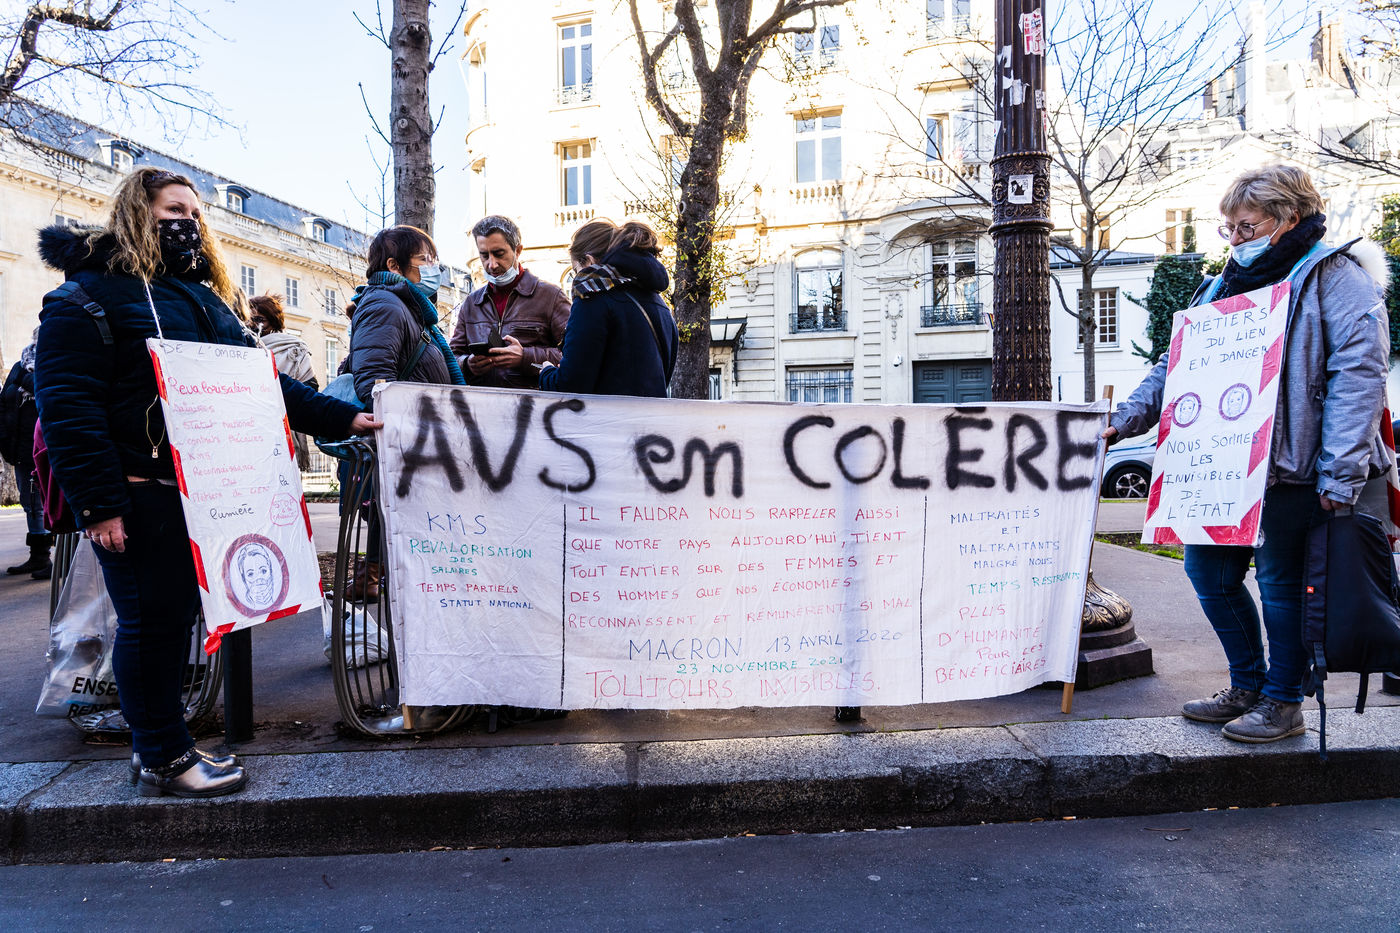 DE L'OMBRE
Revalorisation des
salaires
Statut national
contrats précaires
KMS
Reconnaissance
Des
Métiers du LIEN
à
la
lumière
STOP
AVS en COLÈRE
KMS
REVALORISATION
DES
SALAIRES
TEMPS PARTIELS
STATUT NATIONAL
IL FAUDRA NOUS RAPPELER AUSSI
QUE NOTRE PAYS AUJOURD'HUI, TIENT
TOUT ENTIER SUR DES FEMMES ET
DES HOMMES QUE NOS ÉCONOMIES
RECONNAISSENT ET RÉMUNÈRENT SI MAL
MACRON 13 AVRIL 2020
23 NOVEMBRE 2021
TOUJOURS INVISIBLES.
MALTRAITÉS
ET
MALTRAITANTS
MALGRÉ NOUS
TEMPS RESTREINTS
PLUS
D'HUMANITÉ
POUR LES
BÉNÉFICIAIRES
MÉTIERS
DU LIEN
EN DANGER
NOUS SOMMES
LES
INVISIBLES
DE
L'ÉTAT